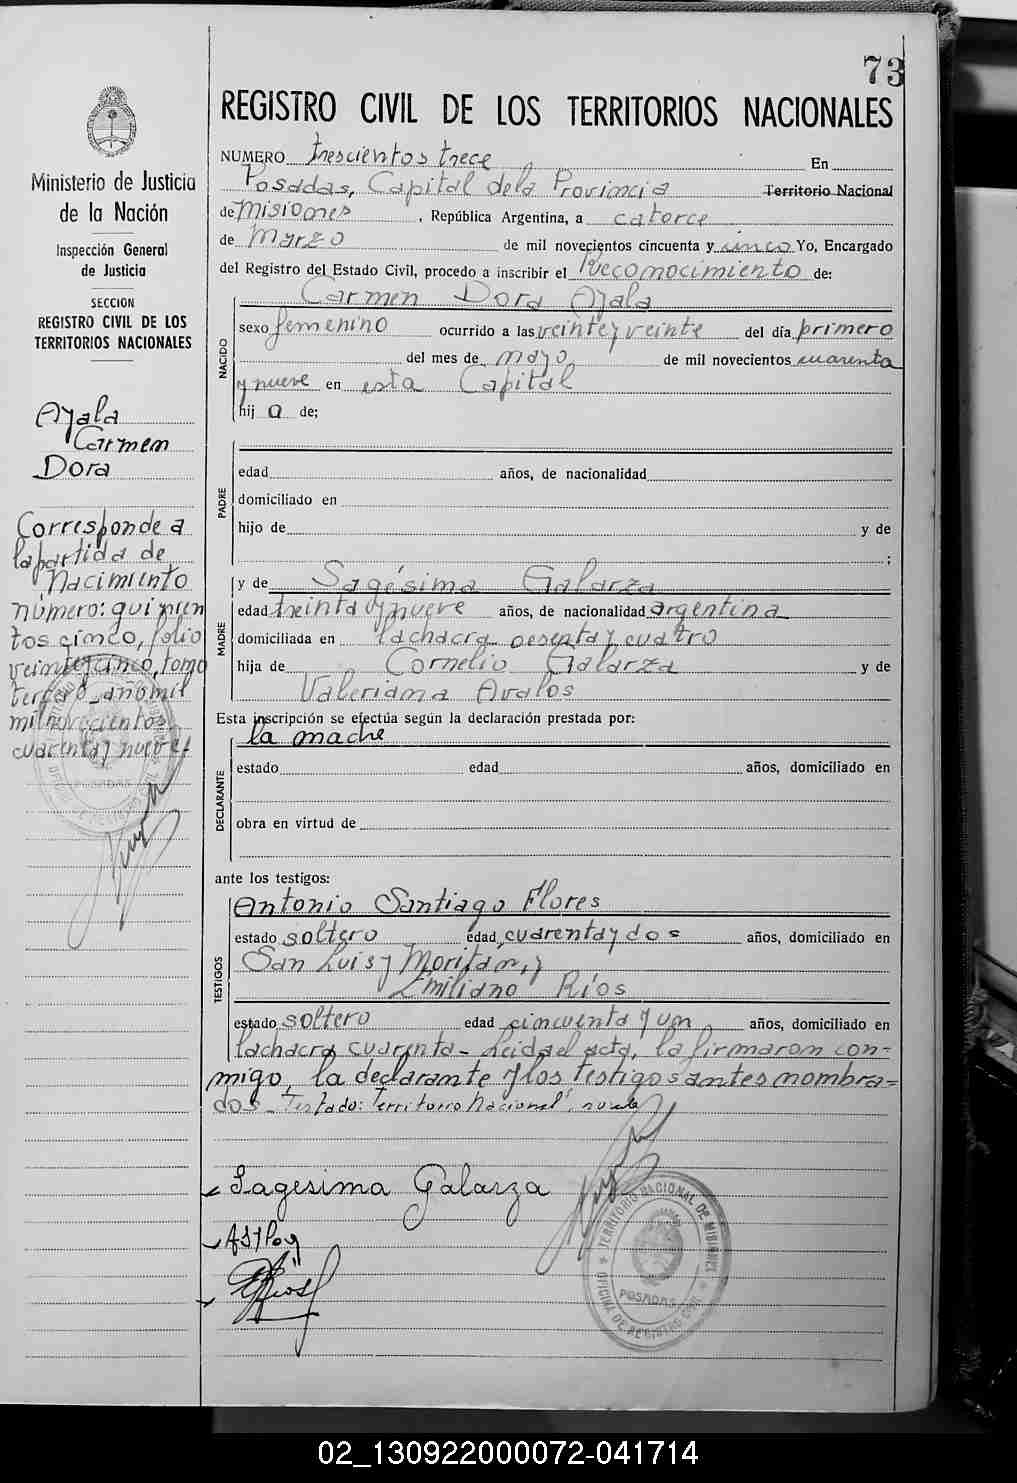 73
REGISTRO CIVIL DE LOS TERRITORIOS NACIONALES
Ministerio de Justicia
de la Nación
Inspección General
de Justicia
SECCION
REGISTRO CIVIL DE LOS
TERRITORIOS NACIONALES
Ayala
Carmen
Dora
Corresponde a
la partida de
nacimiento
número: quinien
tos cinco, folio
veinticinco, tomo
tercero año mil
mil novecientos
cuarenta y nueve
NUMERO trescientos trece En
Posadas, Capital de la Provincia Territorio Nacional
de Misiones, República Argentina, a catorce
de Marzo de mil novecientos cincuenta y cinco Yo, Encargado
del Registro del Estado Civil, procedo a inscribir el Reconocimiento de:
Carmen Dora Ayala
NACIDO
sexo femenino ocurrido a las veinte y veinte del día primero
del mes de mayo de mil novecientos cuarenta
y nueve en esta Capital
hij a de;
PADRE
edad años, de nacionalidad
domiciliado en
hijo de y de
;
MADRE
y de Sagésima Galarza
edad treinta y nueve años, de nacionalidad argentina
domiciliada en la chacra sesenta y cuatro
hija de Cornelio Galarza y de
Valeriana Avalos
Esta inscripción se efectúa según la declaración prestada por:
la madre
DECLARANTE
estado edad años, domiciliado en
obra en virtud de
ante los testigos:
Antonio Santiago Flores
TESTIGOS
estado soltero edad cuarenta y dos años, domiciliado en
San Luis y Moritán, y
Emiliano Ríos
estado soltero edad cincuenta y un años, domiciliado en
la chacra cuarenta - Leida el acta, la firmaron con-
migo, la declarante y los testigos antes nombra=
dos - Testado: "Territorio Nacional", no vale
Sagesima Galarza
TERRITORIO NACIONAL DE MISIONES
POSADAS
OFICINA DE REGISTRO CIVIL
02_130922000072-041714